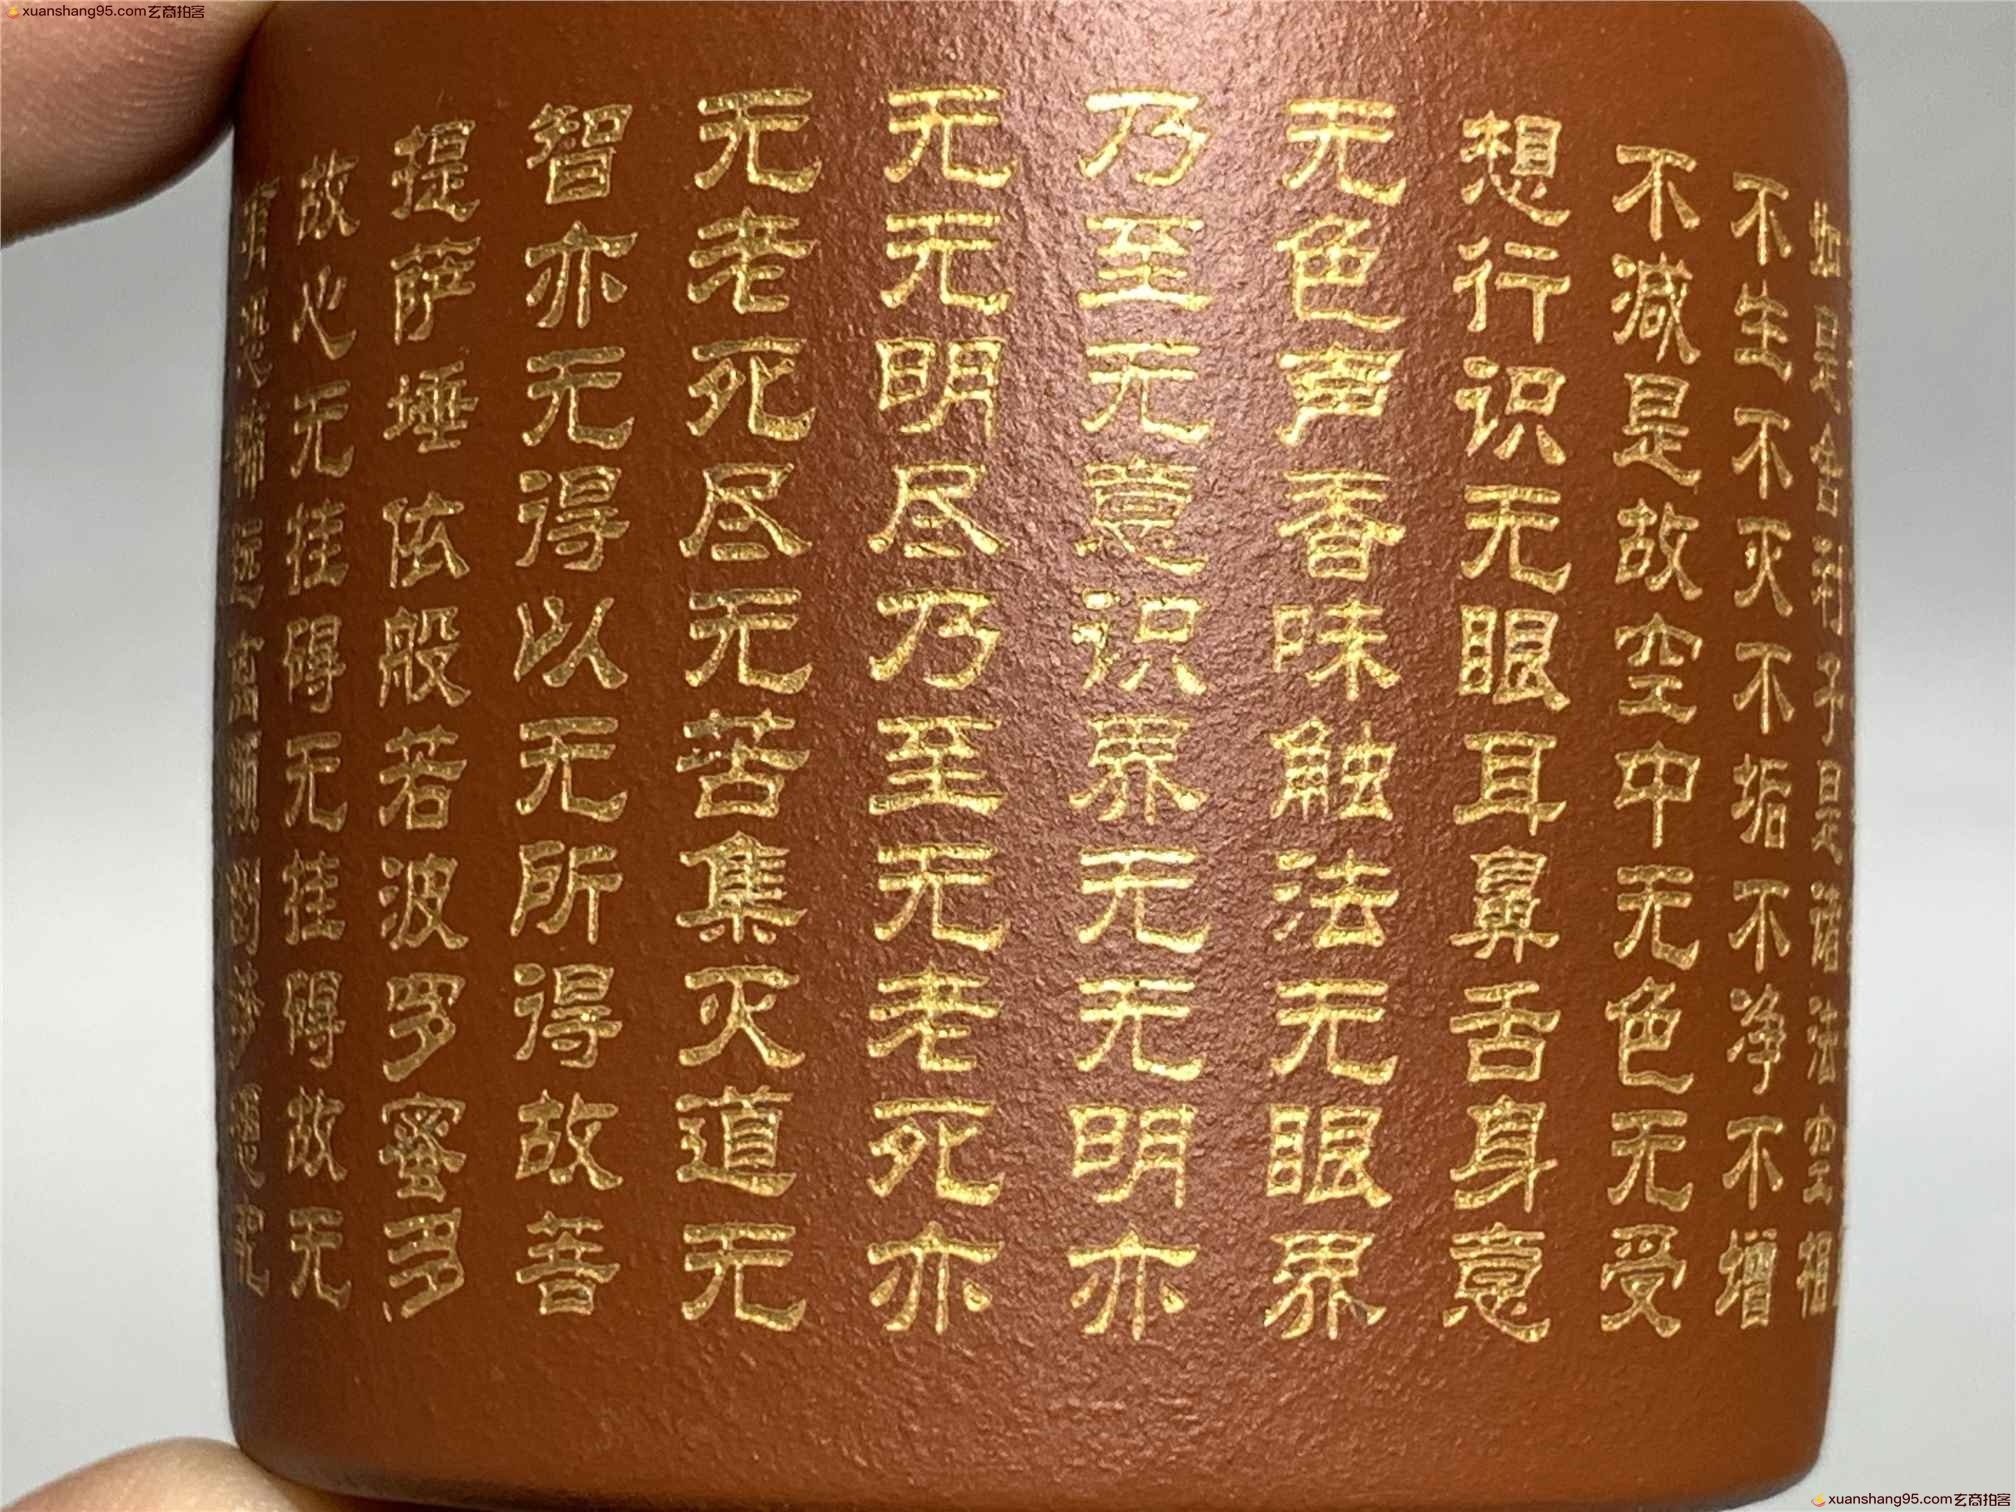 xuanshang95.com玄商拍客
如是舍利子是诸法空相
不生不灭不垢不净不增
不减是故空中无色无受
想行识无眼耳鼻舌身意
无色声香味触法无眼界
乃至无意识界无无明亦
无无明尽乃至无老死亦
无老死尽无苦集灭道无
智亦无得以无所得故菩
提萨埵依般若波罗蜜多
故心无挂碍无挂碍故无
有恐怖远离颠倒梦想究
xuanshang95.com玄商拍客